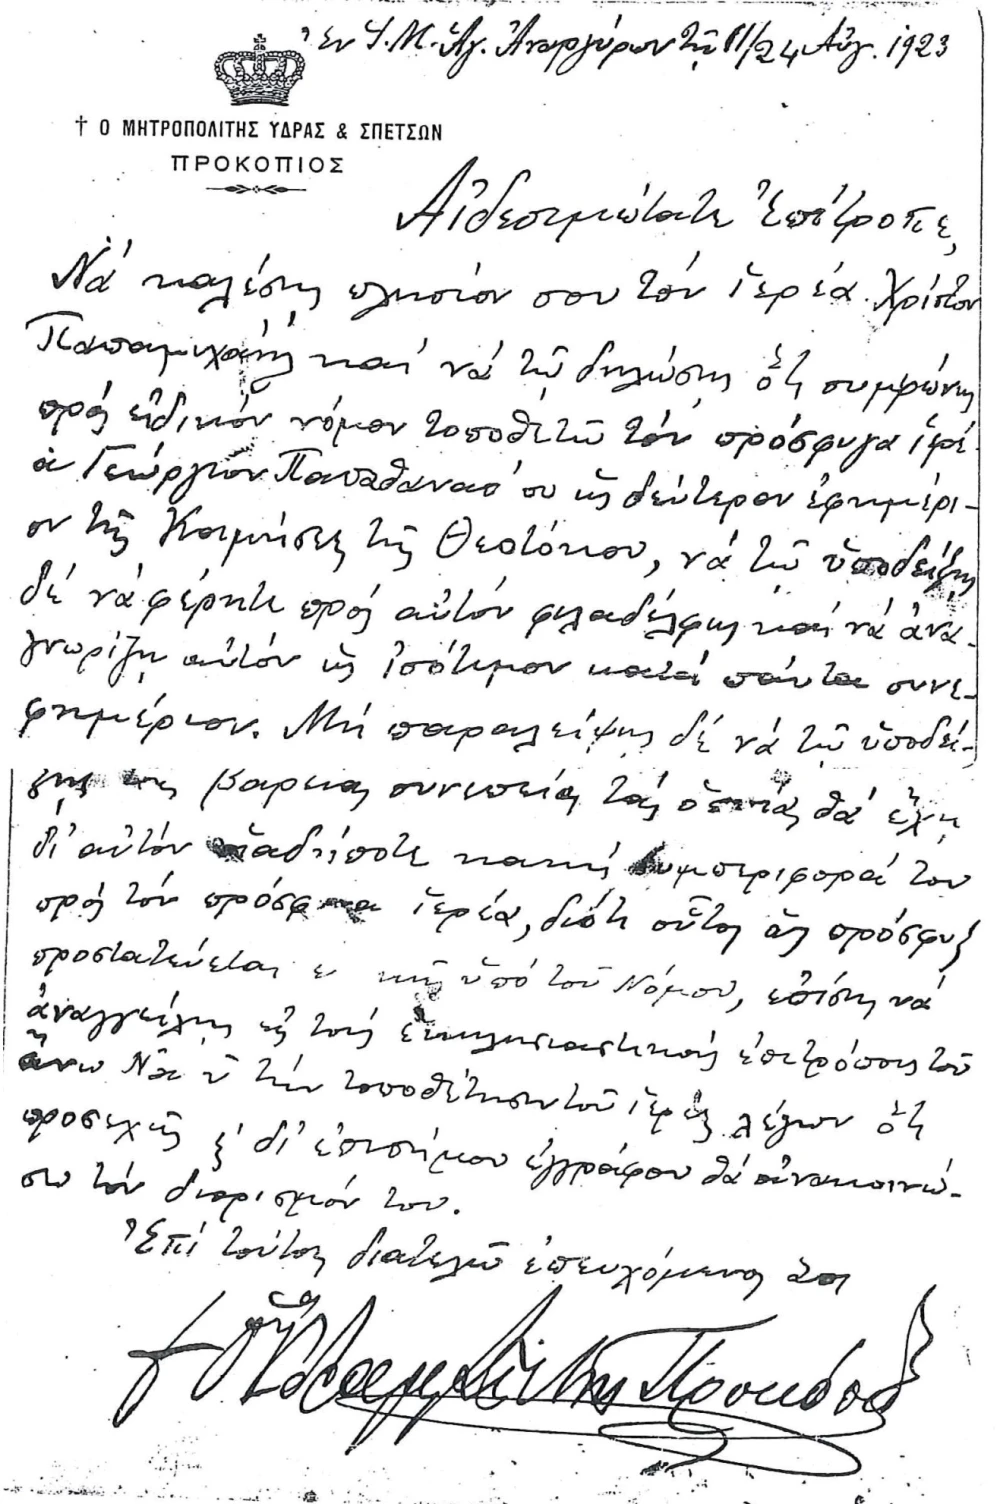 Ἐν Ἱ. Μ. Ἁγ. Ἀναργύρων τῇ 11/24 Αὐγ. 1923
† Ο ΜΗΤΡΟΠΟΛΙΤΗΣ ΥΔΡΑΣ & ΣΠΕΤΣΩΝ
ΠΡΟΚΟΠΙΟΣ
Αἰδεσιμώτατε Ἐπίτροπε,
Νά καλέσῃς πλησίον σου τόν ἱερέα Χρίστον
Παπαμιχαήλ καί νά τῷ δηλώσῃς ὅτι συμφώνως
πρός εἰδικόν νόμον τοποθετῶ τόν πρόσφυγα ἱερέ-
α Γεώργιον Παπαθανασίου ὡς δεύτερον ἐφημέρι-
ον τῆς Κοιμήσεως τῆς Θεοτόκου, νά τῷ ὑποδείξῃς
δέ νά φέρηται πρός αὐτόν φιλαδέλφως καί νά ἀνα-
γνωρίζῃ αὐτόν ὡς ἰσότιμον κατά πάντα συνε-
φημέριον. Μή παραλείψῃς δέ νά τῷ ὑποδεί-
ξῃς τάς βαρείας συνεπείας τάς ὁποίας θά ἔχῃ
δι' αὐτόν οἱαδήποτε κακή συμπεριφορά του
πρός τόν πρόσφυγα ἱερέα, διότι οὗτος ὡς πρόσφυξ
προστατεύεται ὑπό τοῦ Νόμου, ἐπίσης νά
ἀναγγείλῃς εἰς τούς ἐκκλησιαστικούς ἐπιτρόπους τοῦ
ἄνω Ναοῦ τήν τοποθέτησιν τοῦ ἱερέως λέγων ὅτι
προσεχῶς δι' ἐπισήμου ἐγγράφου θά ἀνακοινώ-
σω τόν διορισμόν του.
Ἐπί τούτοις διατελῶ ἐπευχόμενός σοι
† Ὁ Ὕδρας καί Σπετσῶν Προκόπιος